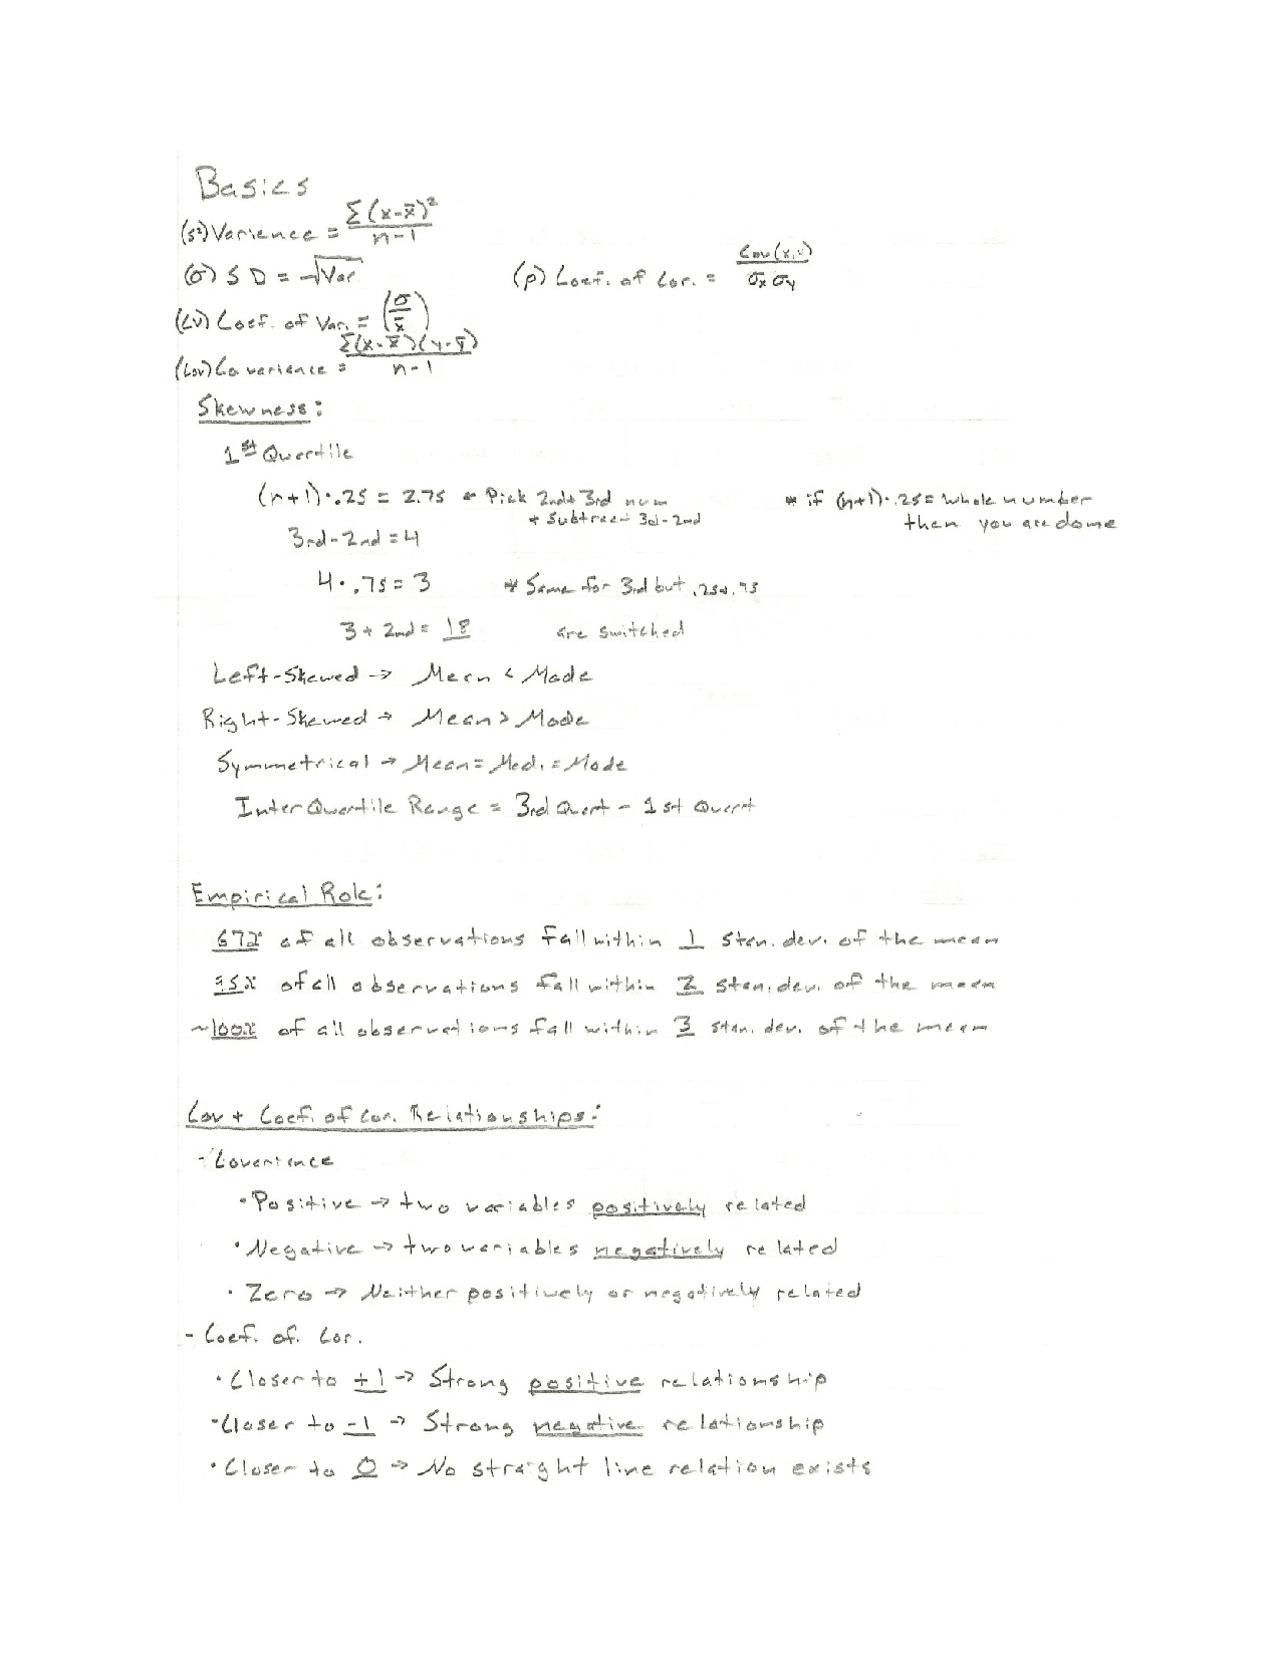 Basics
(s²) Varience = Σ(x-x̄)² / n-1
(σ) S D = √Var
(ρ) Coef. of Cor. = Cov(x,y) / σx σy
(CV) Coef. of Var. = (σ / x̄)
(Cov) Covarience = Σ(x-x̄)(y-ȳ) / n-1
Skewness:
1st Quartile
(n+1)·.25 = 2.75 * Pick 2nd + 3rd num
+ Subtract 3rd-2nd
* if (n+1)·.25 = Whole number
then you are done
3rd-2nd = 4
4·.75 = 3 * Same for 3rd but .25 + .75
3 + 2nd = 18 are switched
Left-Skewed → Mean < Mode
Right-Skewed → Mean > Mode
Symmetrical → Mean = Med. = Mode
InterQuartile Range = 3rd Quart - 1st Quart
Empirical Role:
67% of all observations fall within 1 stan. dev. of the mean
95% of all observations fall within 2 stan. dev. of the mean
~100% of all observations fall within 3 stan. dev. of the mean
Cov + Coef. of Cor. Relationships:
- Covarience
· Positive → two variables positively related
· Negative → two variables negatively related
· Zero → Neither positively or negatively related
- Coef. of. Cor.
· Closer to +1 → Strong positive relationship
· Closer to -1 → Strong negative relationship
· Closer to 0 → No straight line relation exists